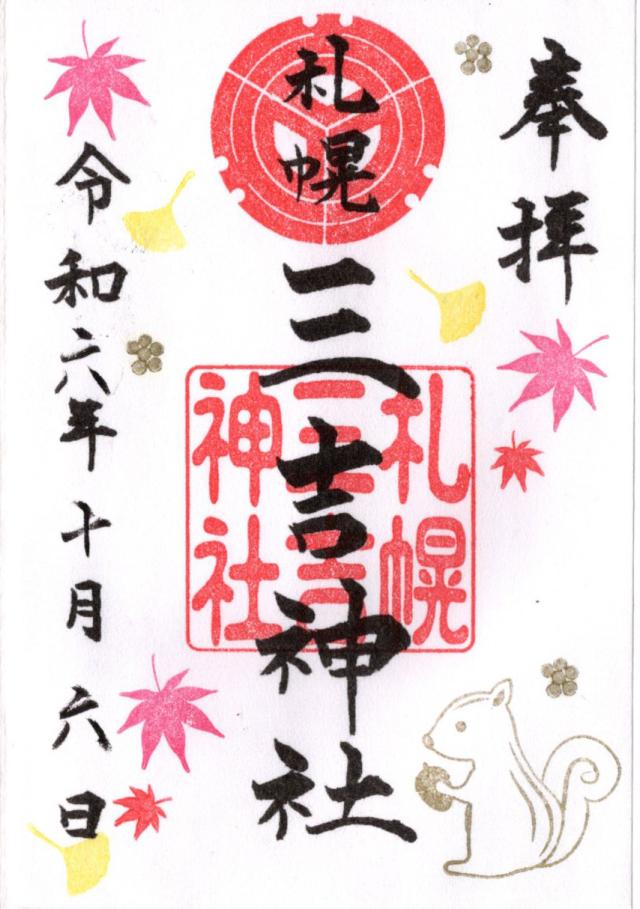 奉拝
札幌
三吉神社
札幌
三吉
神社
令和六年十月六日